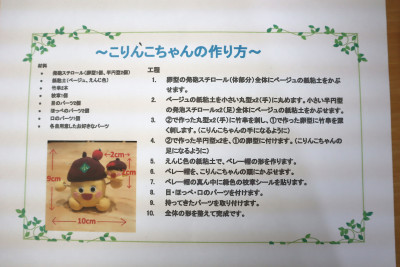 ～こりんこちゃんの作り方～
材料
• 発砲スチロール(卵型1個、半円型2個)
• 紙粘土(ベージュ、えんじ色)
• 竹串2本
• 校章1個
• 目のパーツ2個
• ほっぺのパーツ2個
• 口のパーツ1個
• 各自用意したお好きなパーツ
工程
1. 卵型の発砲スチロール(体部分)全体にベージュの紙粘土をかぶ
せます。
2. ベージュの紙粘土を小さい丸型×2(手)に丸めます。小さい半円型
の発泡スチロール×2(足)全体にベージュの紙粘土をかぶせます。
3. ②で作った丸型×2(手)に竹串を刺し、①で作った卵型に竹串を深
く刺します。(こりんこちゃんの手になるように)
4. ②で作った半円型×2を、①の卵型に付けます。(こりんこちゃんの
足になるように)
5. えんじ色の紙粘土で、ベレー帽の形を作ります。
6. ベレー帽を、こりんこちゃんの頭にかぶせます。
7. ベレー帽の真ん中に緑色の校章シールを貼ります。
8. 目・ほっぺ・口のパーツを付けます。
9. 持ってきたパーツを取り付けます。
10. 全体の形を整えて完成です。
2cm
9cm
4cm
10cm